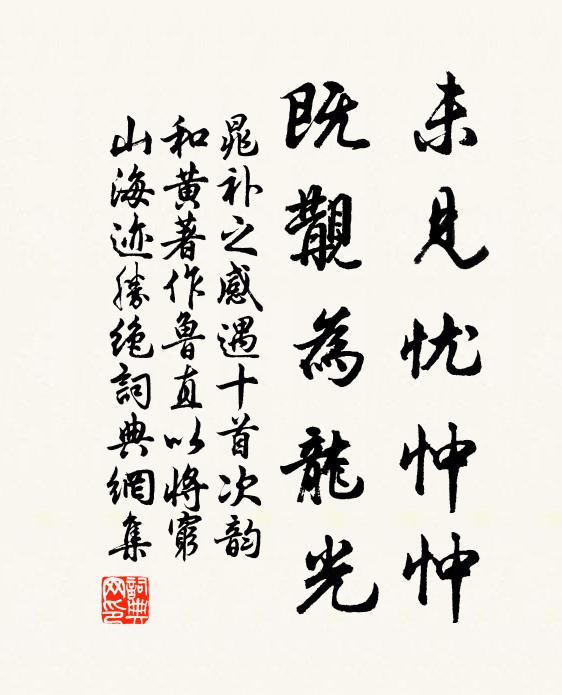 未见忧忡忡
既觏為龍光
晁补之感遇十首次韵
和黄著作鲁直以将穷
山海迹勝绝詞典網集
詞典网印